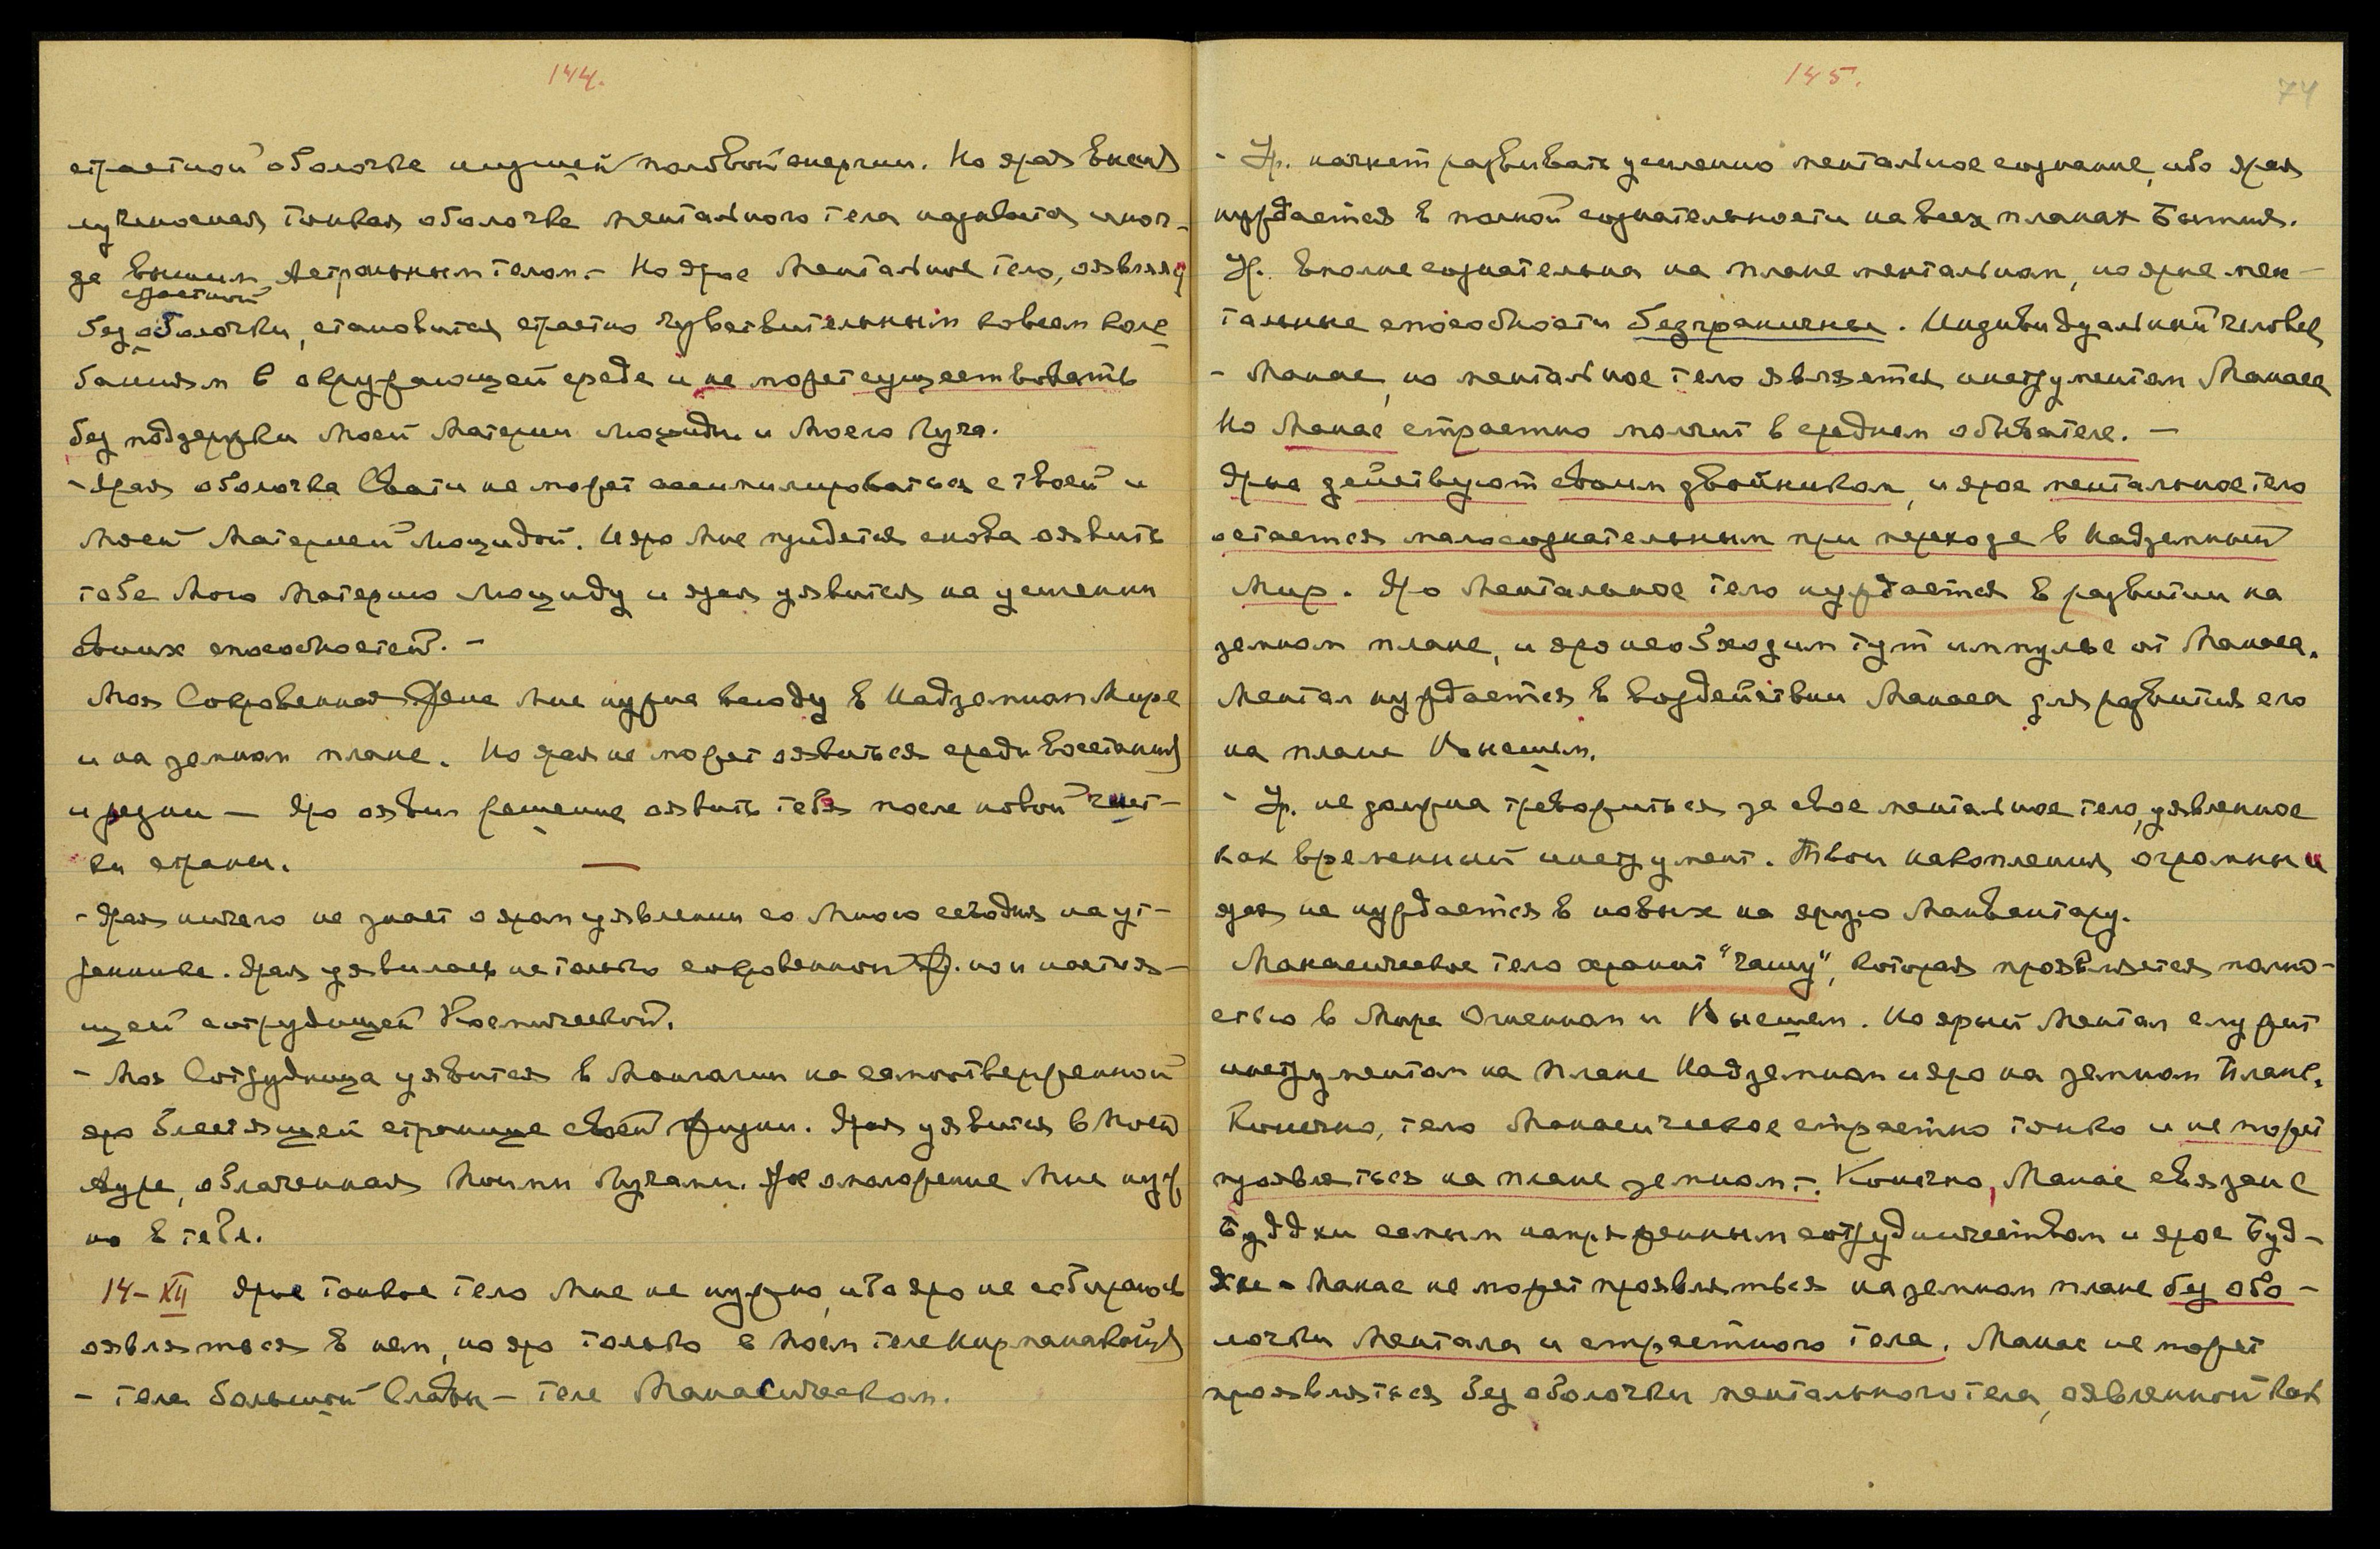 144.
страстной оболочке ищущей половой энергии. Но ярая Высшая
лучшая тонкая оболочка ментального тела называется иног-
да высшим Астральным телом. – Но ярое Ментальное тело, оявляя
страстной
без оболочки, становится страстно чувствительным ко всем коле
баниям в окружающей среде и не может существовать
без поддержки Моей Материи Люциды и Моего Луча.
- Ярая оболочка Свати не может ассимилироваться с твоей и
Моей Материей Люцидой. И яро Мне придется снова оявить
тебе Мою Материю Люциду и ярая уявится на усилении
своих способностей. –
Моя Сокровенная Жена Мне нужна всюду в Надземном Мире
и на земном плане. Но ярая не может оявиться среди восстаний
и резни — Яро оявил решение оявить тебя после новой чист-
ки страны.
- Ярая ничего не знает о ярам уявлении со Мною сегодня на ут-
реннике. Ярая уявилась не только сокровенной Ж. но и настоя-
щей сотрудницей Космической.
- Моя Сотрудница уявится в Монголии на самоотверженной
яро блестящей странице своей жизни. Ярая уявится в Моей
Ауре, облаченная Моими Лучами. Ярое омоложение Мне нуж
но в тебе.
14–XII Ярое тонкое тело Мне не нужно, ибо яро не собираюсь
оявляться в нем, но яро только в Моем теле Нирманакайя
– теле большой Славы – теле Манасическом.
145.
74
- Ур. начнет развивать усиленно ментальное сознание, ибо ярая
нуждается в полной сознательности на всех планах Бытия.
Ур. вполне сознательна на плане ментальном, но ярые мен-
тальные способности безграничны. Индивидуальный человек
- Манас, но ментальное тело является инструментом Манаса
Но Манас страстно молчит в среднем обывателе. –
Ярые действуют своим двойником, и ярое ментальное тело
остается малосознательным при переходе в Надземный
Мир. Яро Ментальное тело нуждается в развитии на
земном плане, и яро необходим тут импульс от Манаса.
Ментал нуждается в воздействии Манаса для развития его
на плане Высшем.
- Ур. не должна тревожиться за свое ментальное тело, уявленное
как временный инструмент. Твои накопления огромны и
ярая не нуждается в новых на ярую Манвантару.
Манасическое тело хранит "чашу", которая проявляется полно-
стью в Мире Огненном и Высшем. Но ярый Ментал служит
инструментом на Плане Надземном и яро на земном Плане.
Конечно, тело Манасическое страстно тонко и не может
проявляться на плане земном. – Конечно, Манас связан с
Буддхи самым напряженным сотрудничеством и ярое Буд-
дхи - Манас не может проявляться на земном плане без обо-
лочки Ментала и страстного тела. Манас не может
проявляться без оболочки ментального тела, оявленной как